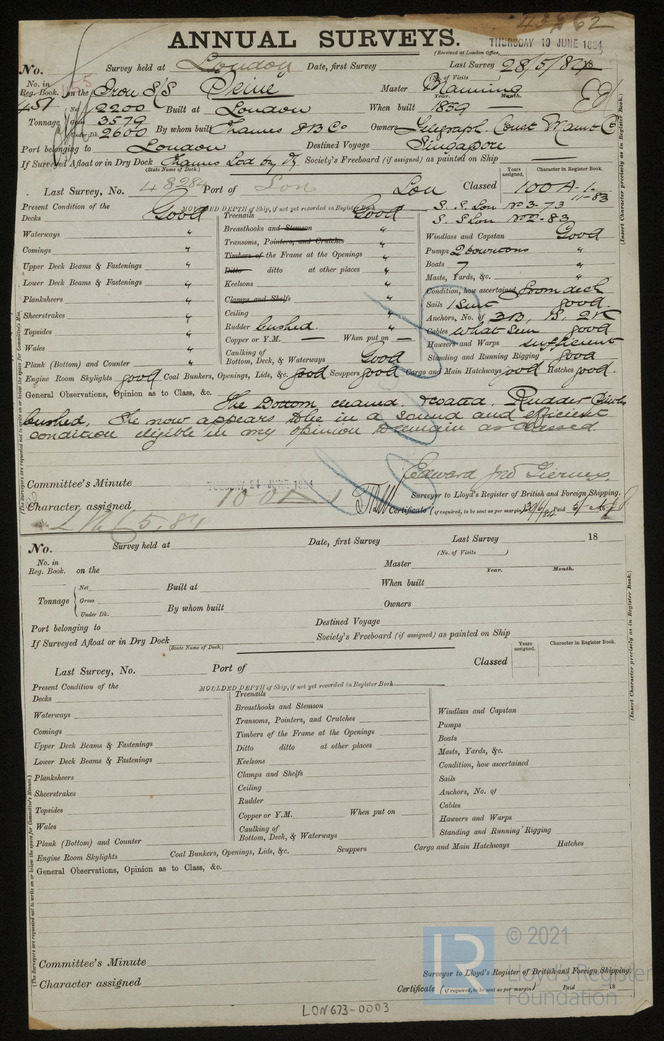 ANNUAL SURVEYS.
(Received at London Office,
THURSDAY 19 JUNE 1884
No. Survey held at London Date, first Survey Last Survey 28/5/84 18
(No. of Visits )
No. in Reg. Book. on the Iron S/S Seine Master Manning
Year. Month.
451 Net 2200 Built at London When built 1859
Tonnage Gross 3579
Under Dk. 2600 By whom built Thames S B Co Owners Telegraph Const Maint Co
Port belonging to London Destined Voyage Singapore
If Surveyed Afloat or in Dry Dock Society's Freeboard (if assigned) as painted on Ship
(State Name of Dock.)
Years assigned. Character in Register Book.
Last Survey, No. Port of Lon Lon Classed 100 A 1
11-83
S. S. Lon No 3-73
S S Lon No 2-83
Present Condition of the MOULDED DEPTH of Ship, if not yet recorded in Register Book
Decks Good Treenails Good
Waterways " Breasthooks and Stemson " Windlass and Capstan Good
Comings " Transoms, Pointers, and Crutches " Pumps "
Upper Deck Beams & Fastenings " Timbers of the Frame at the Openings " Boats 7 "
Lower Deck Beams & Fastenings " Ditto ditto at other places " Masts, Yards, &c. "
Planksheers " Keelsons " Condition, how ascertained from deck
Sheerstrakes " Clamps and Shelfs " Sails 1 Suit good
Topsides " Ceiling " Anchors, No. of 3B, 1S, 2K
Wales " Rudder bushed. " Cables good
Plank (Bottom) and Counter " Copper or Y.M. — When put on — Hawsers and Warps sufficient
Caulking of Bottom, Deck, & Waterways Good Standing and Running Rigging good
Engine Room Skylights good Coal Bunkers, Openings, Lids, &c. good Scuppers good Cargo and Main Hatchways good Hatches good.
General Observations, Opinion as to Class, &c. The Bottom cleaned & coated. Rudder
bushed, She now appears to be in a sound and efficient
condition eligible in my opinion to remain as classed
Committee's Minute TUESDAY 24 JUNE 1884
Surveyor to Lloyd's Register of British and Foreign Shipping.
Character assigned 100 A 1
Certificate (if required, to be sent as per margin) Paid
(The Surveyors are requested not to write on or below the space for Committee's Minute.)
(Insert Character precisely as in Register Book.)
No. Survey held at Date, first Survey Last Survey 18
(No. of Visits )
No. in Reg. Book. on the Master
Year. Month.
Net Built at When built
Tonnage Gross
Under Dk. By whom built Owners
Port belonging to Destined Voyage
If Surveyed Afloat or in Dry Dock Society's Freeboard (if assigned) as painted on Ship
(State Name of Dock.)
Years assigned. Character in Register Book.
Last Survey, No. Port of Classed
Present Condition of the MOULDED DEPTH of Ship, if not yet recorded in Register Book
Decks Treenails
Waterways Breasthooks and Stemson Windlass and Capstan
Comings Transoms, Pointers, and Crutches Pumps
Upper Deck Beams & Fastenings Timbers of the Frame at the Openings Boats
Lower Deck Beams & Fastenings Ditto ditto at other places Masts, Yards, &c.
Planksheers Keelsons Condition, how ascertained
Sheerstrakes Clamps and Shelfs Sails
Topsides Ceiling Anchors, No. of
Wales Rudder Cables
Plank (Bottom) and Counter Copper or Y.M. When put on Hawsers and Warps
Caulking of Bottom, Deck, & Waterways Standing and Running Rigging
Engine Room Skylights Coal Bunkers, Openings, Lids, &c. Scuppers Cargo and Main Hatchways Hatches
General Observations, Opinion as to Class, &c.
Committee's Minute
Surveyor to Lloyd's Register of British and Foreign Shipping.
Character assigned
Certificate (if required, to be sent as per margin) Paid 18
(The Surveyors are requested not to write on or below the space for Committee's Minute.)
(Insert Character precisely as in Register Book.)
LON673-0003
LR
© 2021
Lloyd's Register
Foundation